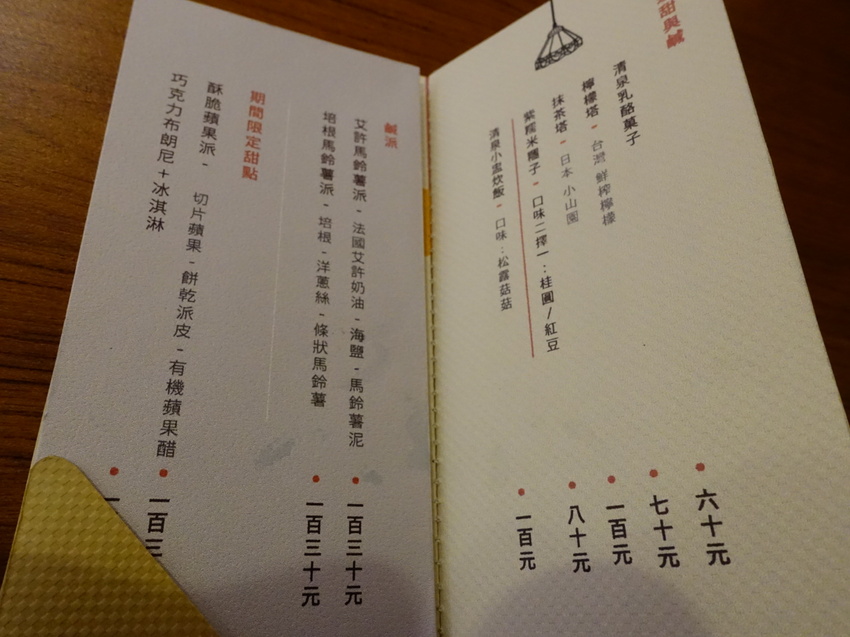 甜與鹹
清泉乳酪菓子 • 六十元
檸檬塔 • 台灣 鮮榨檸檬 • 七十元
抹茶塔 • 日本 小山園 • 一百元
紫糯米糰子 • 口味二擇一:桂圓/紅豆 • 八十元
清泉小盅炊飯 • 口味:松露菇菇 • 一百元
鹹派
艾許馬鈴薯派 - 法國艾許奶油 - 海鹽 - 馬鈴薯泥 • 一百三十元
培根馬鈴薯派 - 培根 - 洋蔥絲 - 條狀馬鈴薯 • 一百三十元
期間限定甜點
酥脆蘋果派 - 切片蘋果 - 餅乾派皮 - 有機蘋果醋 • 一百三
巧克力布朗尼+冰淇淋 • 一